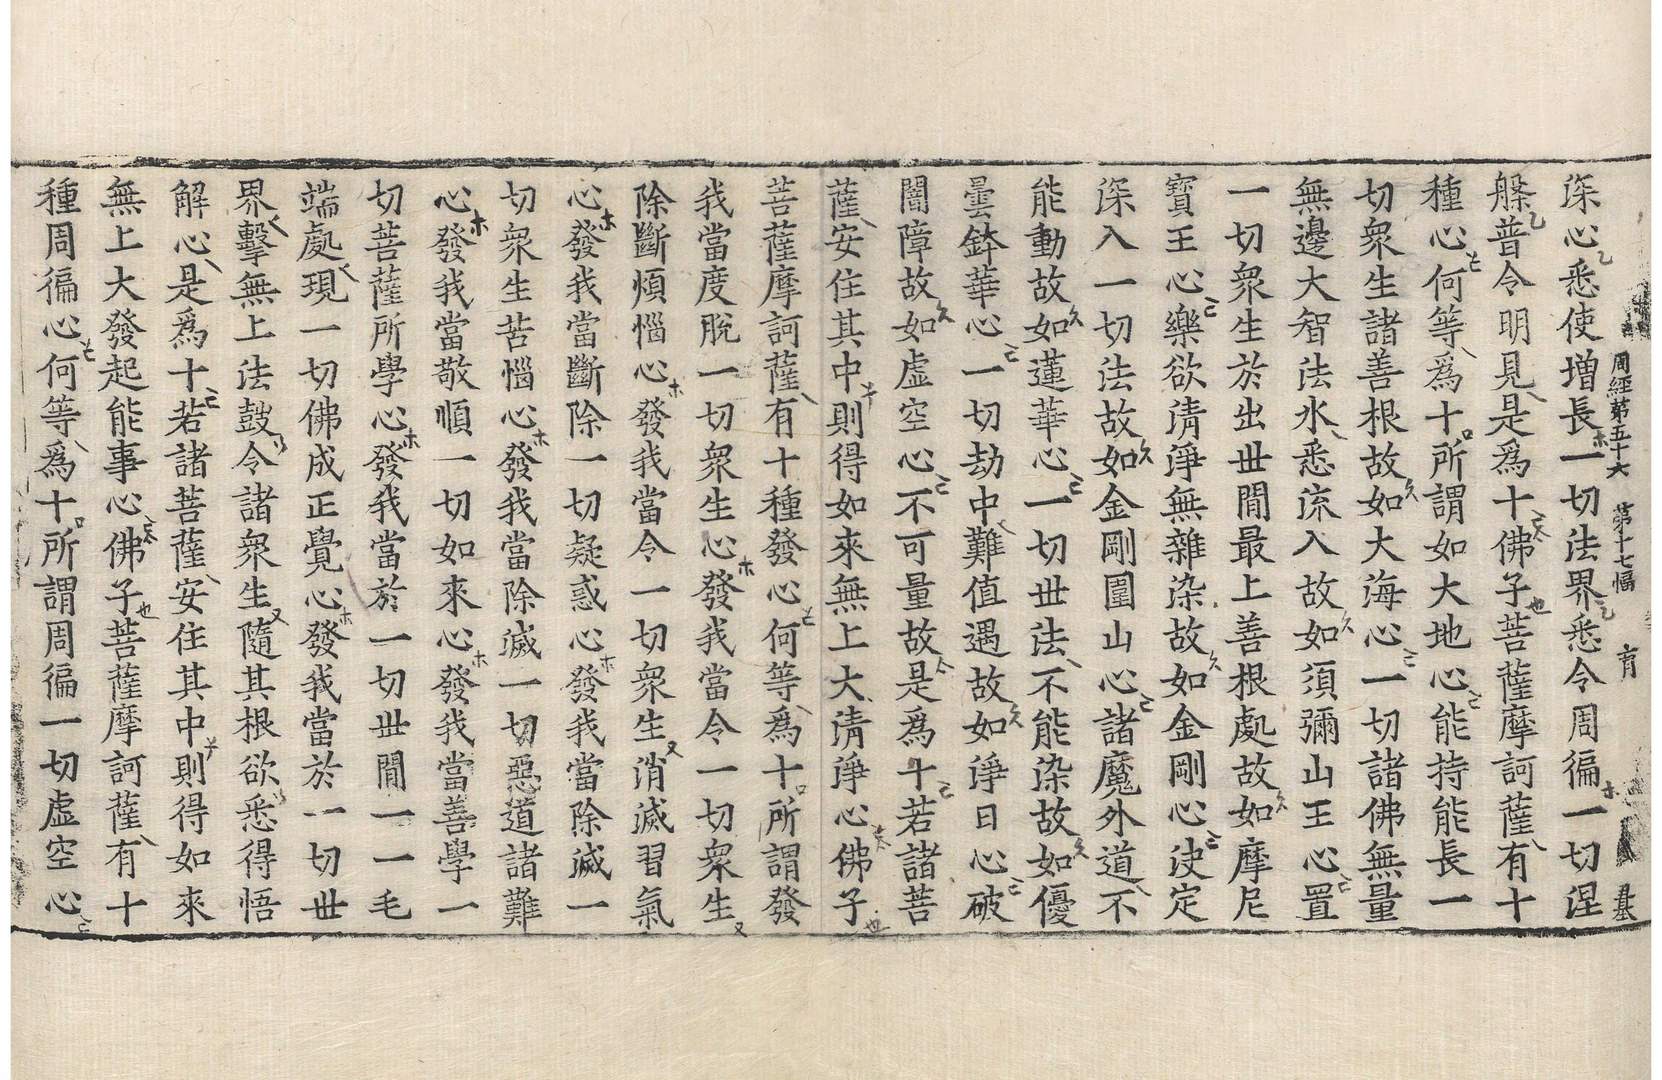 周經第五十六 第十七幅 育
深心悉使增長一切法界悉令周徧一切涅
槃普令明見是爲十佛子菩薩摩訶薩有十
種心何等爲十所謂如大地心能持能長一
切衆生諸善根故如大海心一切諸佛無量
無邊大智法水悉流入故如須彌山王心置
一切衆生於出世間最上善根處故如摩尼
寶王心樂欲淸淨無雜染故如金剛心決定
深入一切法故如金剛圍山心諸魔外道不
能動故如蓮華心一切世法不能染故如優
曇鉢華心一切劫中難值遇故如淨日心破
闇障故如虛空心不可量故是爲十若諸菩
薩安住其中則得如來無上大淸淨心佛子
菩薩摩訶薩有十種發心何等爲十所謂發
我當度脫一切衆生心發我當令一切衆生
除斷煩惱心發我當令一切衆生消滅習氣
心發我當斷除一切疑惑心發我當除滅一
切衆生苦惱心發我當除滅一切惡道諸難
心發我當敬順一切如來心發我當善學一
切菩薩所學心發我當於一切世間一一毛
端處現一切佛成正覺心發我當於一切世
界擊無上法鼓令諸衆生隨其根欲悉得悟
解心是爲十若諸菩薩安住其中則得如來
無上大發起能事心佛子菩薩摩訶薩有十
種周徧心何等爲十所謂周徧一切虛空心